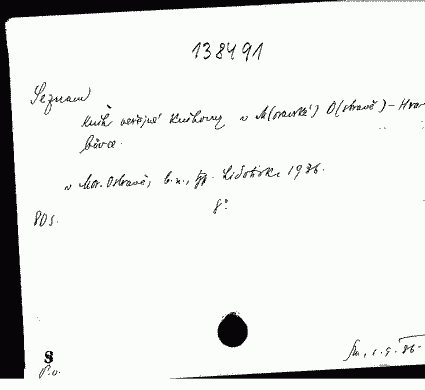 138491
Seznam
knih veřejné knihovny v M(oravské) O(stravě) - Hra
bůvce.
v Mor. Ostravě, b.n., typ. Lidotisk. 1936.
8°
80 s.
8